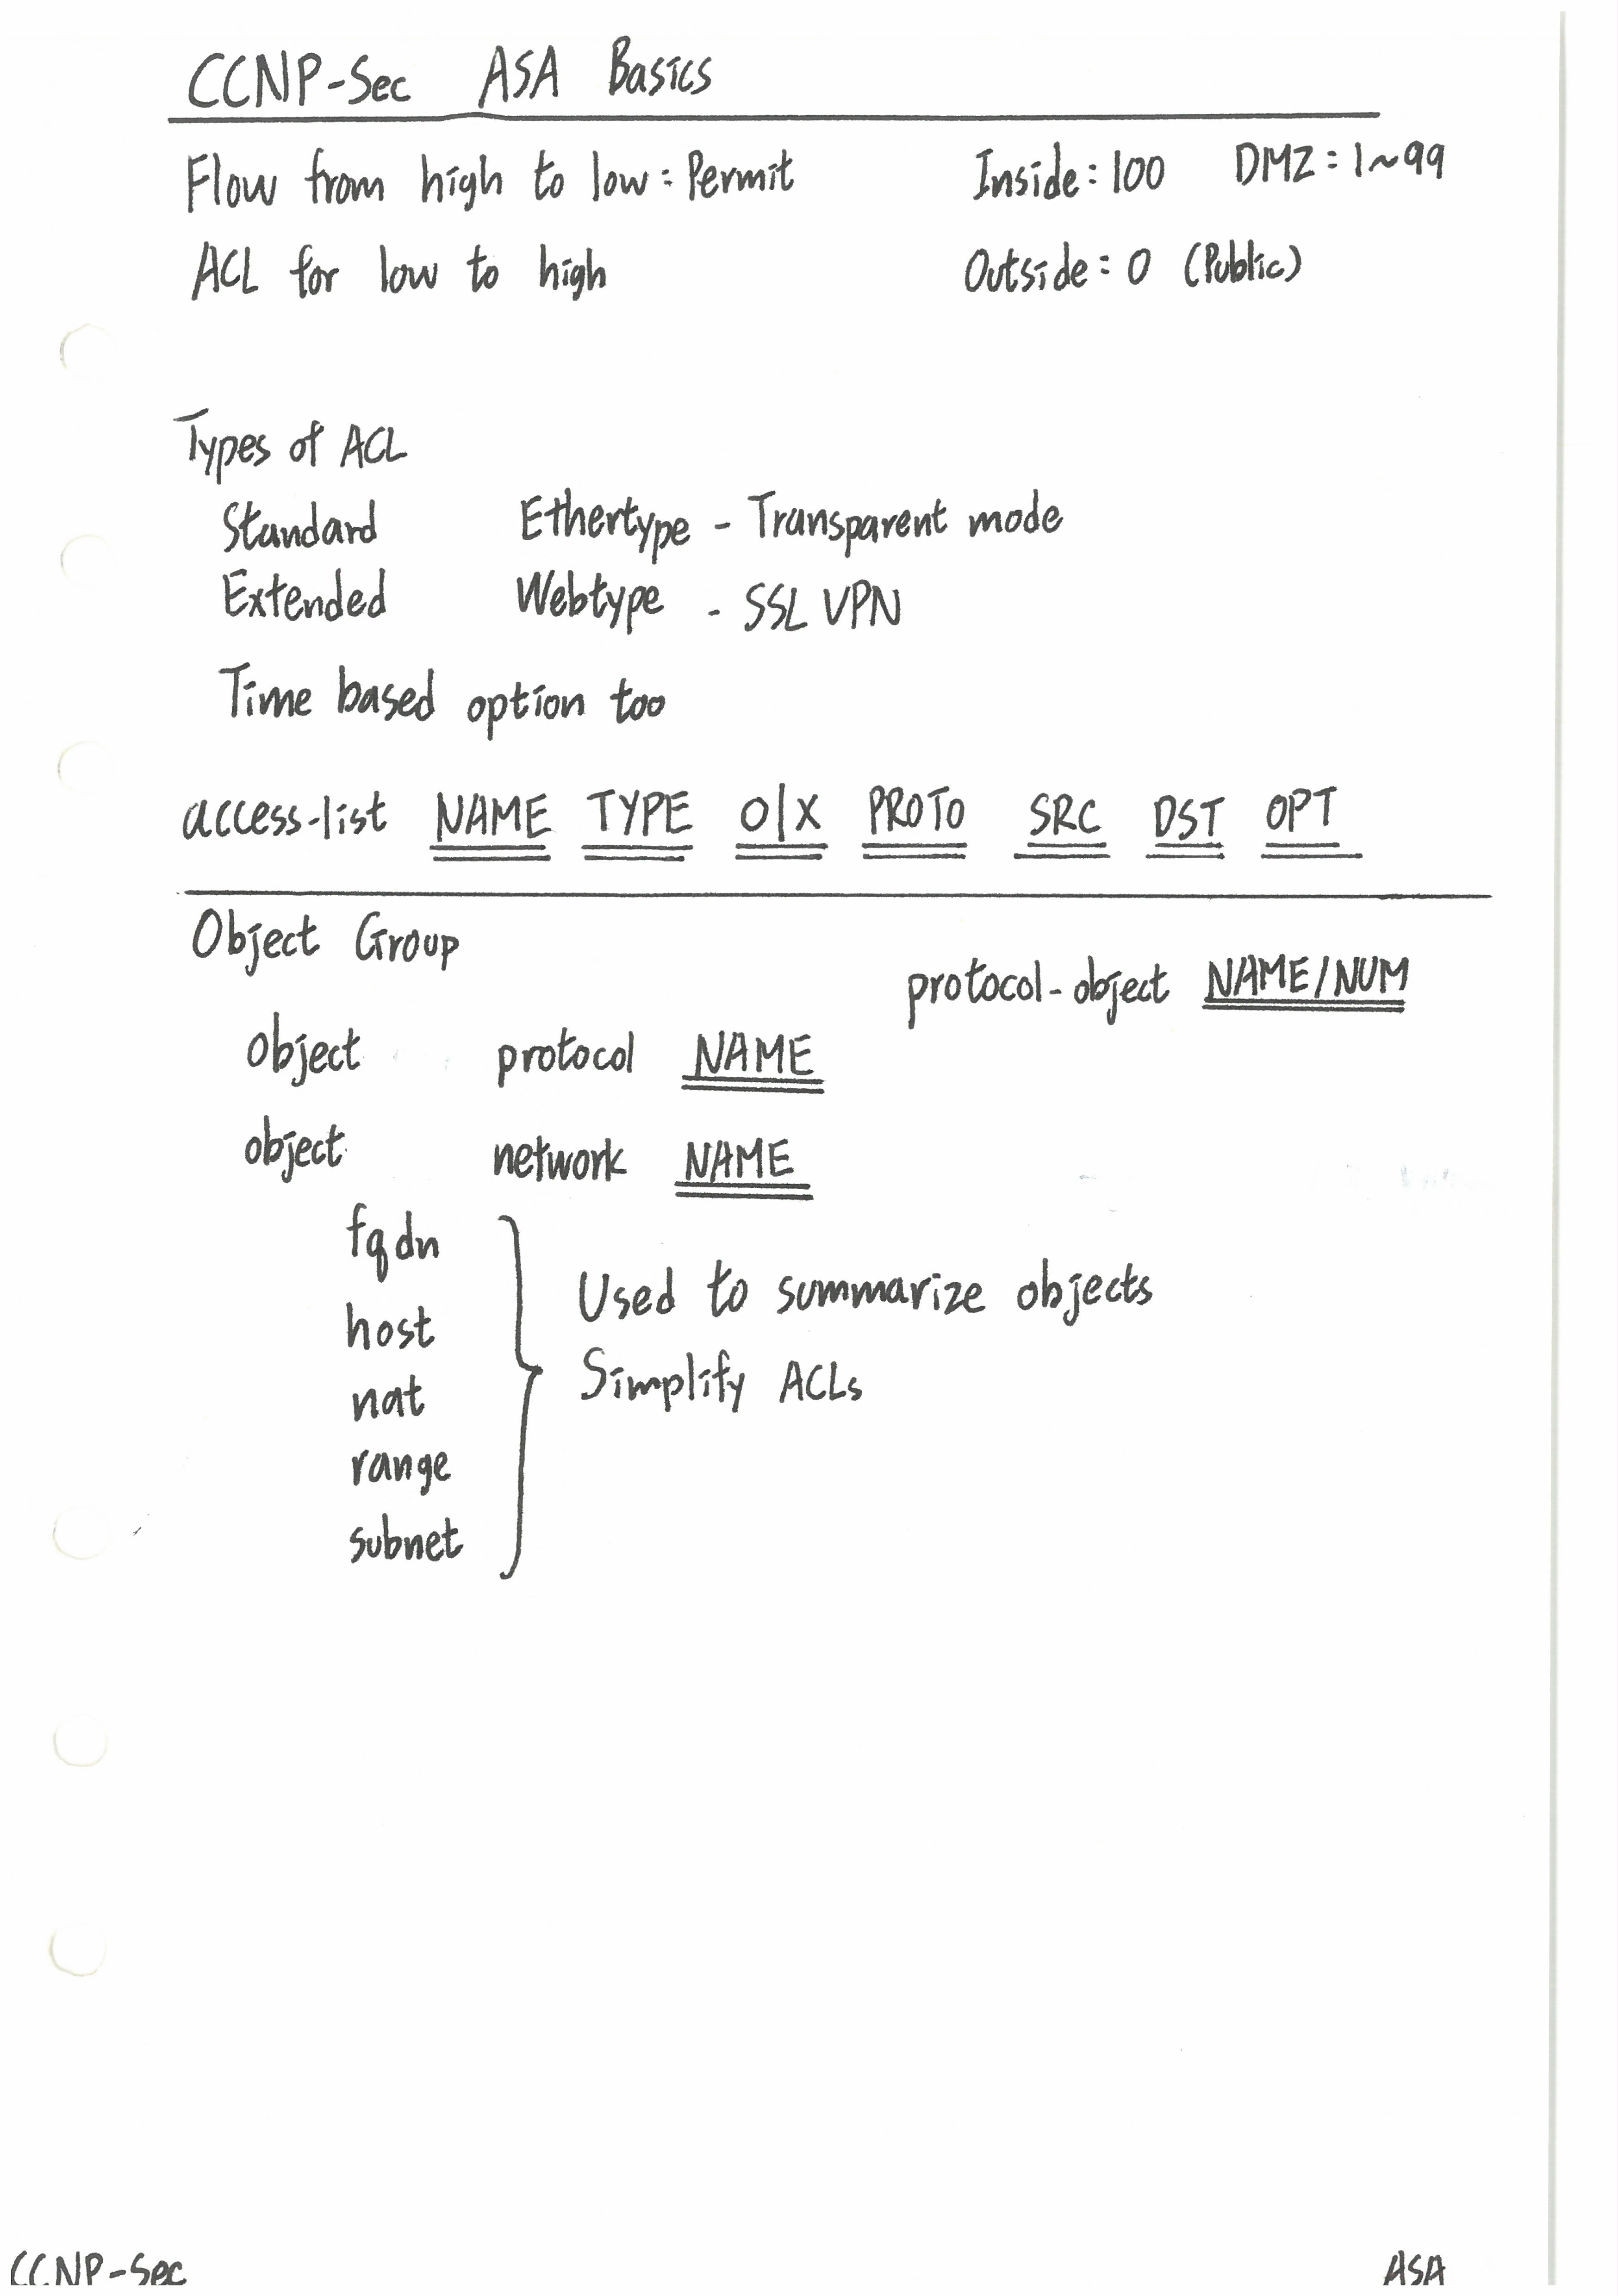 CCNP-Sec ASA Basics
Flow from high to low : Permit Inside : 100 DMZ : 1~99
ACL for low to high Outside : 0 (Public)
Types of ACL
Standard Ethertype - Transparent mode
Extended Webtype - SSL VPN
Time based option too
access-list NAME TYPE O|X PROTO SRC DST OPT
Object Group
protocol-object NAME/NUM
object protocol NAME
object network NAME
fqdn
host
nat
range
subnet
Used to summarize objects
Simplify ACLs
CCNP-Sec ASA